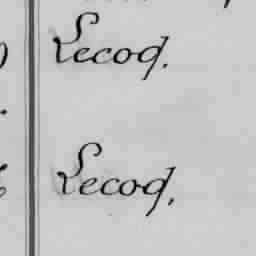 Lecoq.
Lecoq,